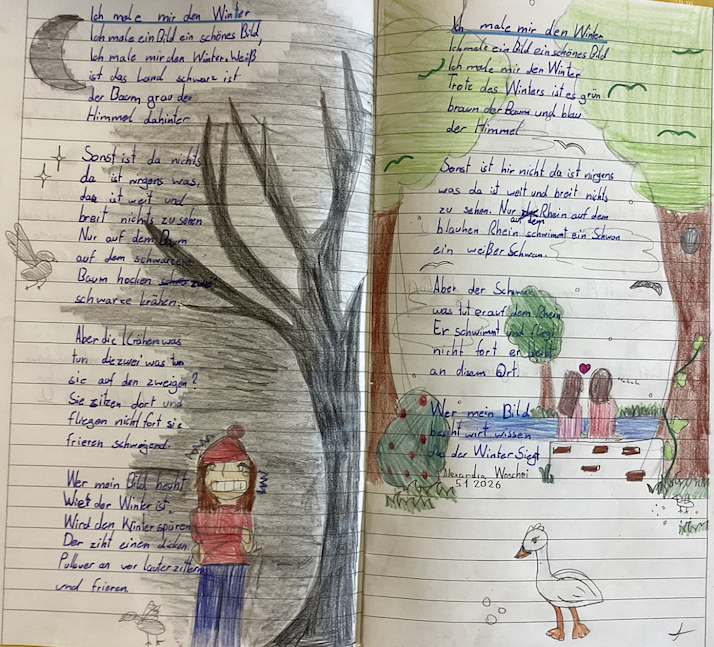 Ich male mir den Winter
Ich male ein Bild ein schönes Bild
Ich male mir den Winter. Weiß
ist das Land schwarz ist
der Baum grau der
Himmel dahinter
Sonst ist da nichts
da ist nirgens was,
das ist weit und
breit nichts zu sehen
Nur auf dem Baum
auf dem schwarzen
Baum hocken zwei
schwarze krähen.
Aber die Krähen was
tun die zwei was tun
sie auf den zweigen?
Sie sitzen dort und
fliegen nicht fort sie
frieren schweigend.
Wer mein Bild besiht
Wie der Winter ist,
Wird den Winter spüren
Der ziht einen dicken
Pullover an vor lauter zittern
und frieren.
Ich male mir den Winter
Ich male ein Bild ein schönes Bild
Ich male mir den Winter
Trotz des Winters ist es grün
braun der Baum und blau
der Himmel
Sonst ist hir nicht da ist nirgens
was da ist weit und breit nichts
zu sehen. Nur Rhein auf dem
auf dem
blauhen Rhein schwimmt ein Schwan
ein weißer Schwan.
Aber der Schwan
was tut er auf dem Rhein
Er schwimmt und fliegt
nicht fort er
an disem Ort.
Wer mein Bild
besiht wirt wissen
das der Winter Siegt
Alexandra Woschei
5.1 2026